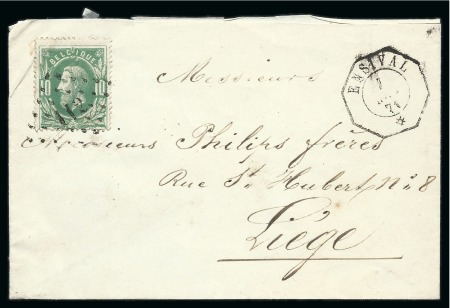 BELGIQUE
10 10
ENSIVAL
1
71
Messieurs
Messieurs Philips frères
Rue St Hubert No 8
Liége